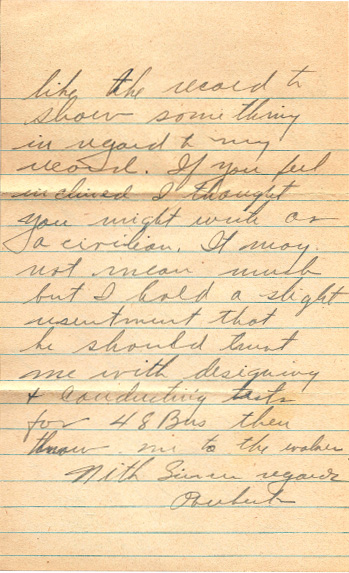 like the record to
show something
in regard to my
record. If you feel
inclined I thought
you might write as
a civilian. It may
not mean much
but I hold a slight
resentment that
he should trust
me with designing
& conducting tests
for 48 Bns then
throw me to the wolves
With Sincere regards